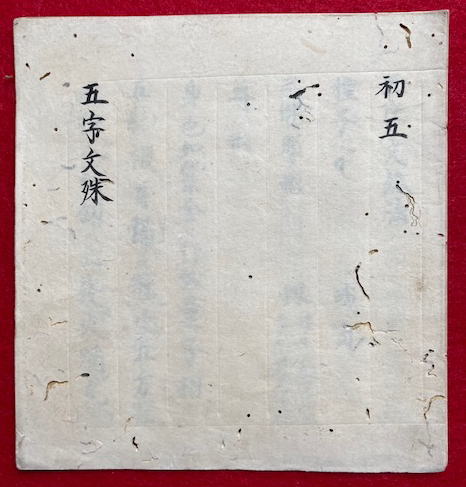 初五
五字文殊